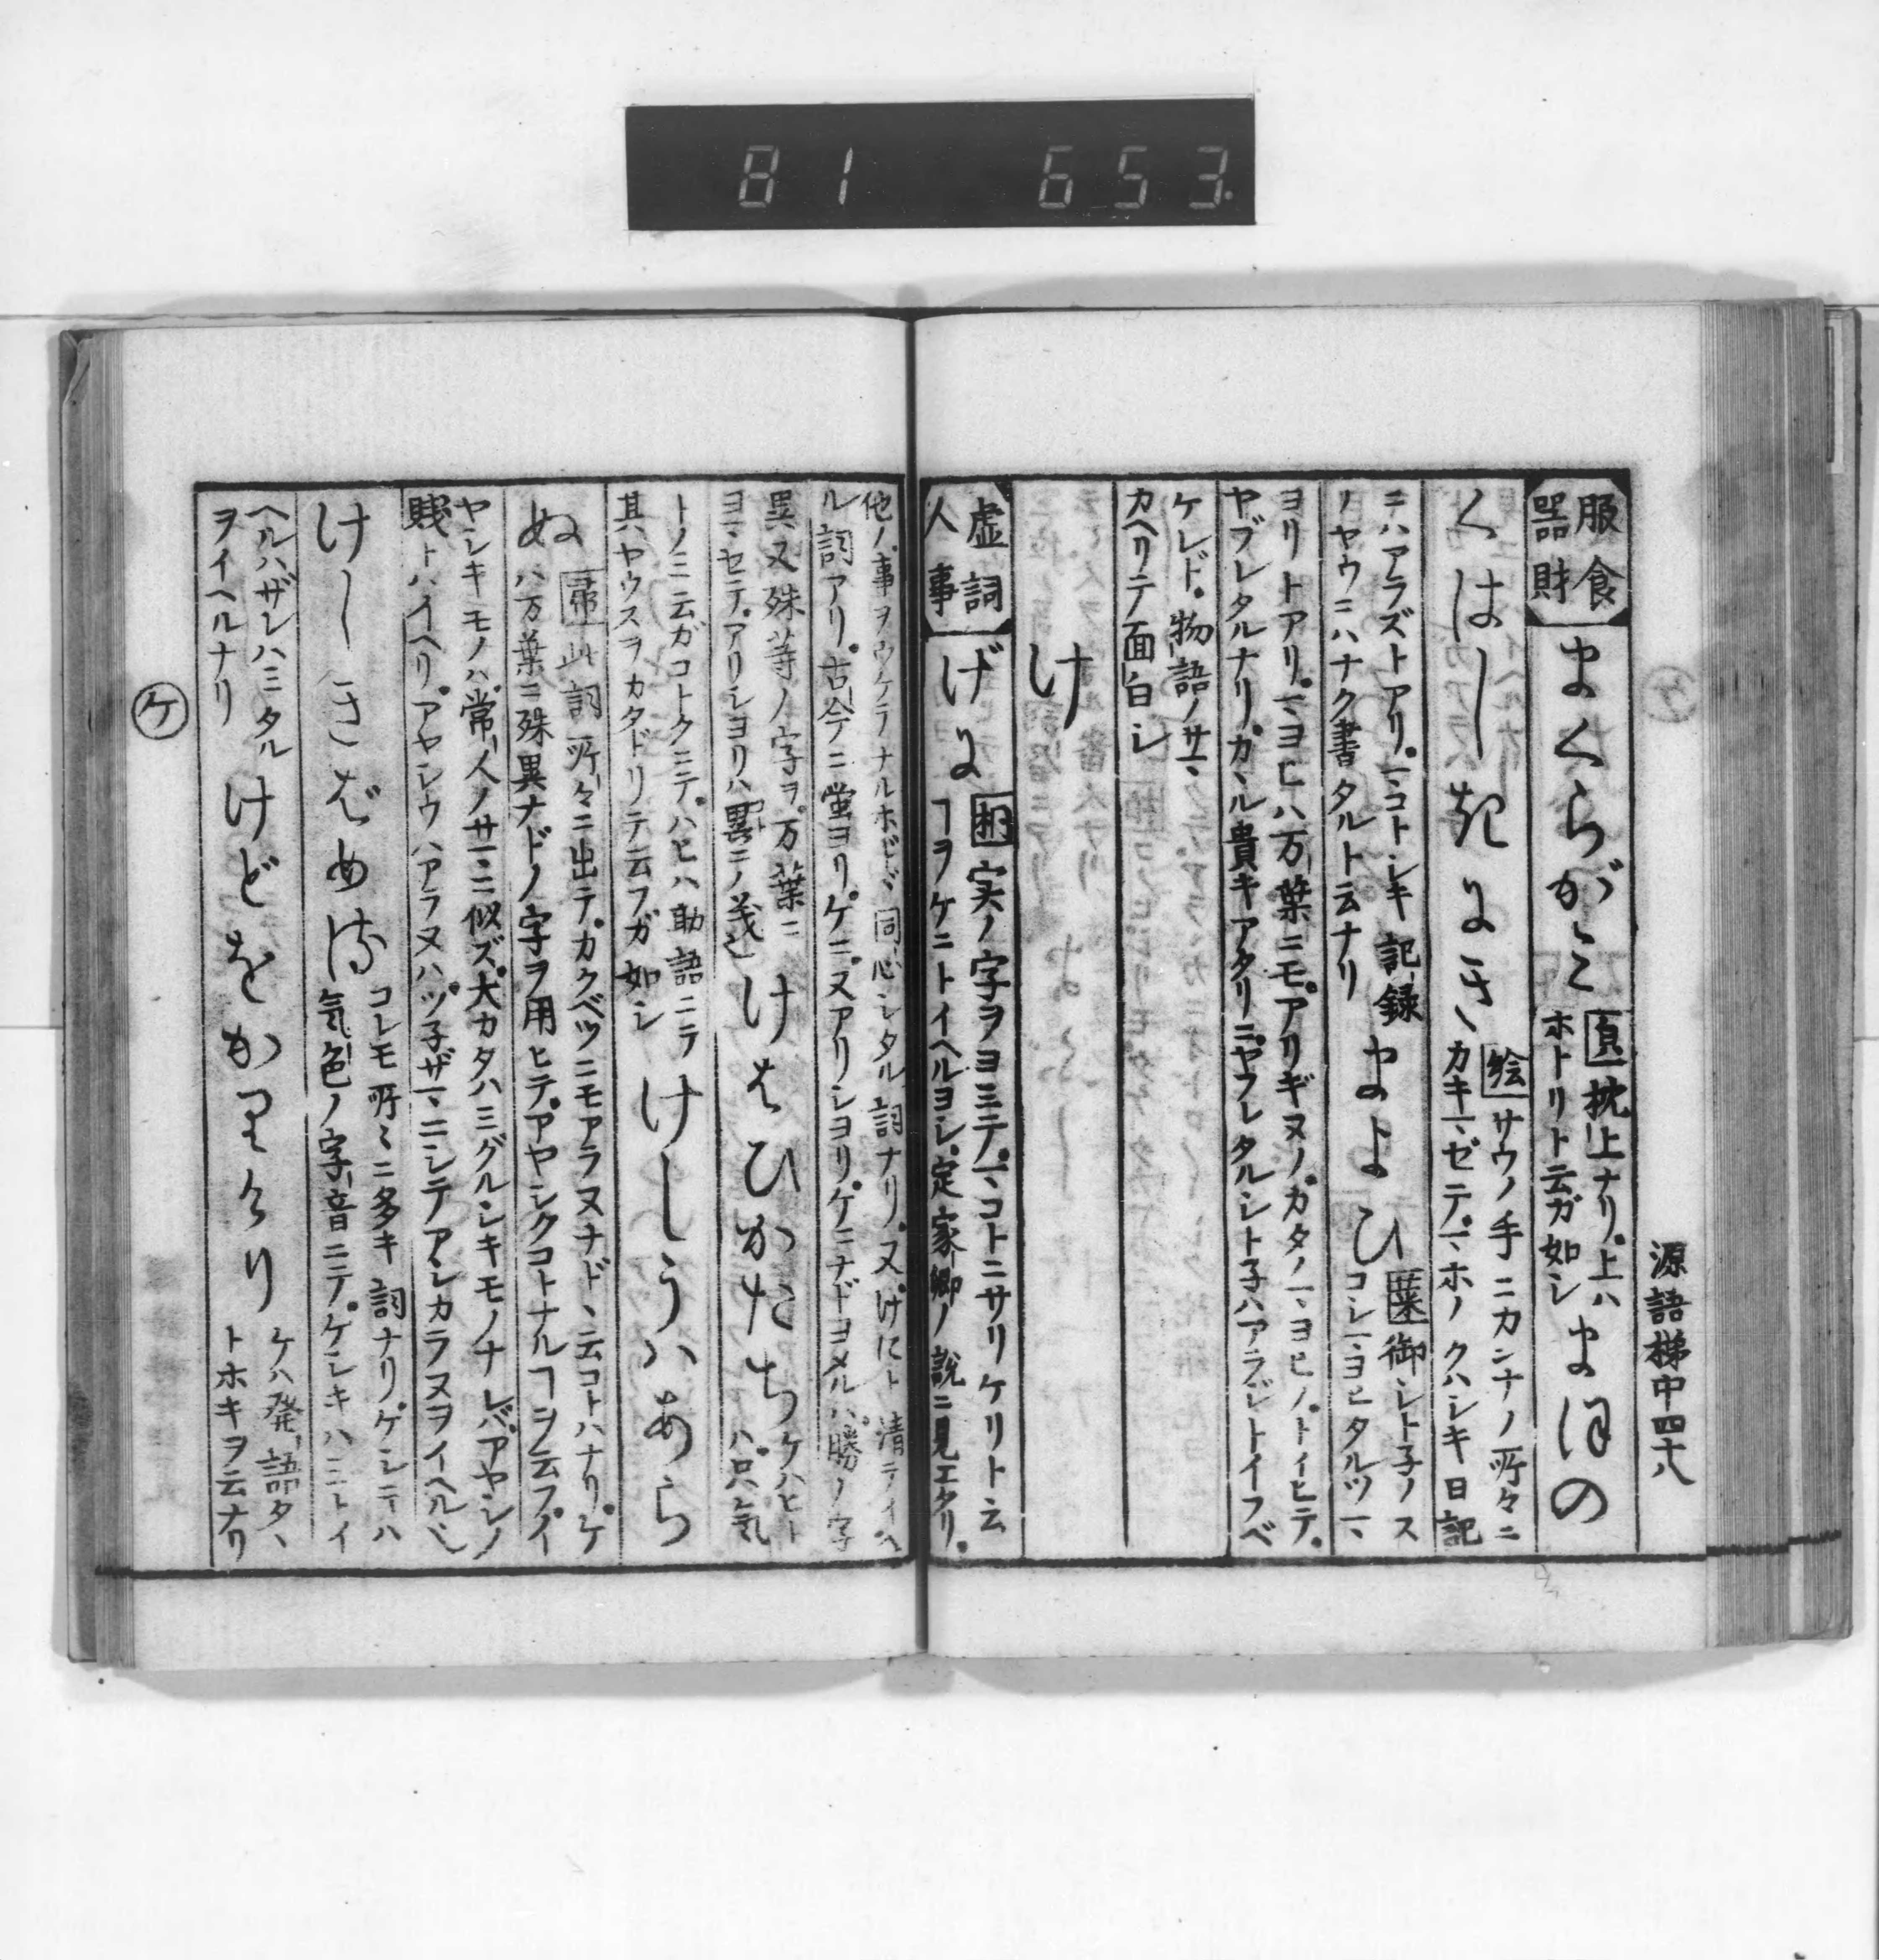 81 653
源語梯中四十八
服食
器財
まくらがみ
頁 枕上ナリ。上ハ
ホトリト云ガ如シ
まほの
くはしき
にき
絵 サウノ手ニカンナノ所々ニ
カキマゼテ。マホノクハシキ日記
ニハアラズトアリ。マコトシキ記録
ノヤウニハナク書タルト云ナリ
まよひ
葉 御シトネノス
コシマヨヒタルツマ
ヨリトアリ。マヨヒハ万葉ニモ。アリギヌノ。カタノマヨヒノ。トイヒテ。
ヤブレタルナリ。カヽル貴キアタリニ。ヤフレタルシトネハアラジトイフベ
ケレド。物語ノサマ
カヘリテ面白シ
け
虚詞
人事
げに
桐 実ノ字ヲヨミテ。マコトニサリケリト云
ヿヲケニトイヘルヨシ。定家卿ノ説ニ見エタリ。
他ノ事ヲウケテナルホドヽ同心シタル詞ナリ。又けにト清テイヘ
ル詞アリ。古今ニ蛍ヨリ。ケニ。又アリシヨリ。ケニナドヨメルハ。勝ノ字
異又殊等ノ字ヲ。万葉ニ
ヨマセテ。アリシヨリハ異ニノ義也
けはひかたち
ケハヒト
ハ只気
トノミ云ガコトクニテ。ハヒハ助語ニテ
其ヤウスヲカタドリテ云フガ如シ
けしうハあら
ぬ
帚 此詞所々ニ出テ。カクベツニモアラヌナドヽ云コトハナリ。ケ
ハ万葉ニ殊異ナドノ字ヲ用ヒテ。アヤシクコトナルヿヲ云フ。イ
ヤシキモノハ。常人ノサマニ似ズ。大カタハミグルシキモノナレバ。アヤシノ
賤トハイヘリ。アヤシウハアラヌハ。ツネザマニシテアシカラヌヲイヘル也
けしきばめる
コレモ所々ニ多キ詞ナリ。ケシキハ
気色ノ字音ニテ。ケシキハミトイ
ヘルハザレハミタル
ヲイヘルナリ
けどをかりけり
ケハ発語タヽ
トホキヲ云ナリ
ケ